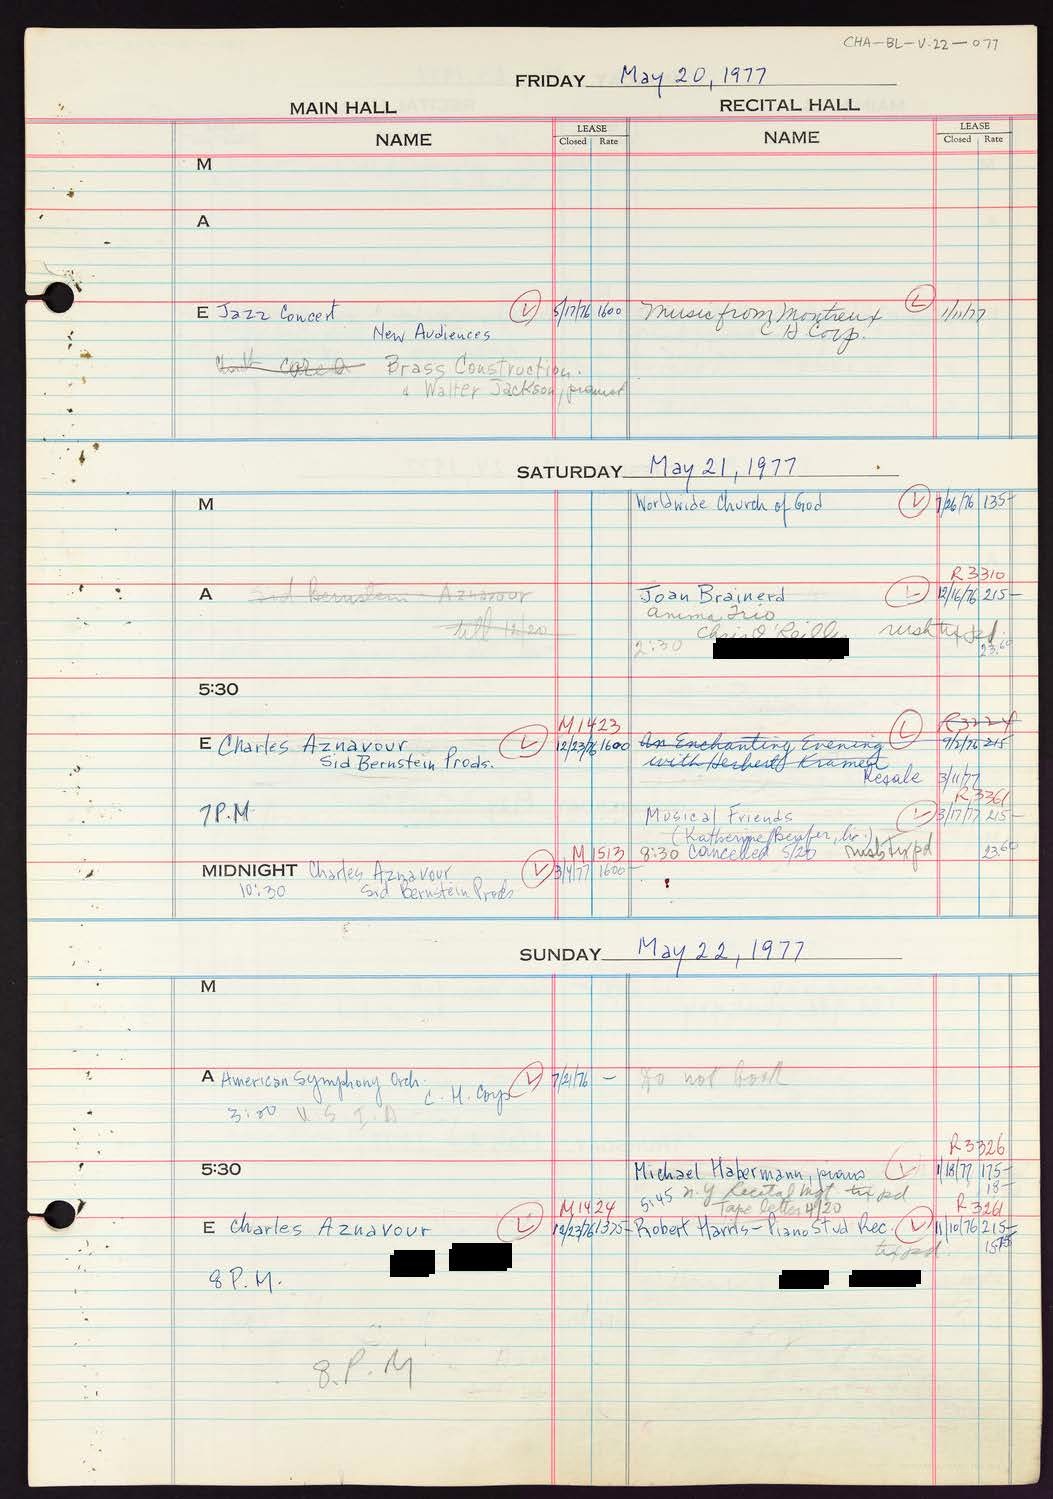 CHA-BL-V.22-077
FRIDAY May 20, 1977
MAIN HALL RECITAL HALL
NAME LEASE Closed Rate NAME LEASE Closed Rate
M
A
E Jazz Concert L 5/17/76 1600 Music from Montreux L 1/11/77
New Audiences C H Corp.
Brass Construction.
& Walter Jackson, pianist
SATURDAY May 21, 1977
M Worldwide Church of God L 7/26/76 135-
R3310
A Sid Bernstein - Aznavour Joan Brainerd L 12/16/76 215-
Anima Trio
till 12/20 Chris O'Reilly rush tix pd.
2:30 23.60
5:30
M1423 R3224
E Charles Aznavour L 12/23/76 1600 An Enchanting Evening L 9/2/76 215
Sid Bernstein Prods. with Herbert Kramer
Resale 3/11/77
R3361
7 P.M. Musical Friends L 3/17/77 215-
(Katherine
M1513 8:30 Cancelled 5/20 rush tix pd 23.60
MIDNIGHT Charles Aznavour L 3/4/77 1600-
10:30 Sid Bernstein Prods
SUNDAY May 22, 1977
M
A American Symphony Orch. L 7/21/76 - Do not book
C. H. Corp
3:00 U S I A
R3326
5:30 Michael Habermann, piano L 1/18/77 175-
5:45 N.Y Recital Mgt tix pd 18-
Tape letter 4/20
M1424 R3261
E Charles Aznavour L 12/23/76 1375- Robert Harris - Piano Stud Rec. L 11/10/76 215-
tix pd. 15.75
8 P.M.
8. P. M